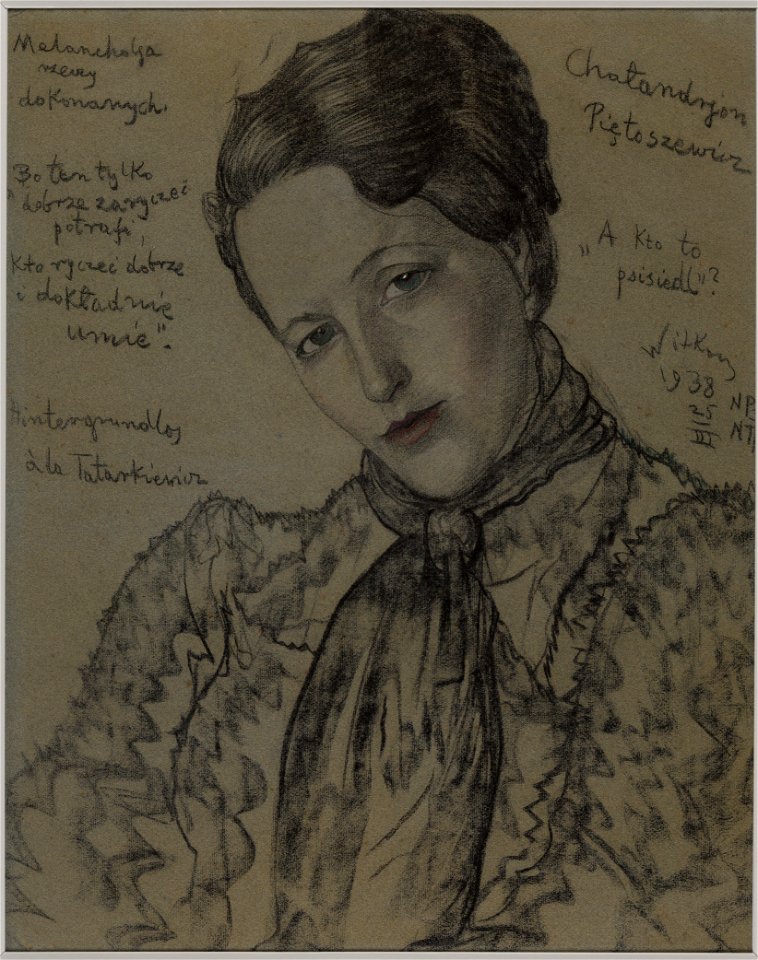 Melancholja
rzeczy
dokonanych.
Bo ten tylko
"dobrze zaryczeć
potrafi,
Kto ryczeć dobrze
i dokładnie
umie".
Hintergrundlos
à la Tatarkiewicz
Chałandryon
Piętoszewicz
„A kto to
psisiedl"?
Witkacy
1938
25
III
NP
NT